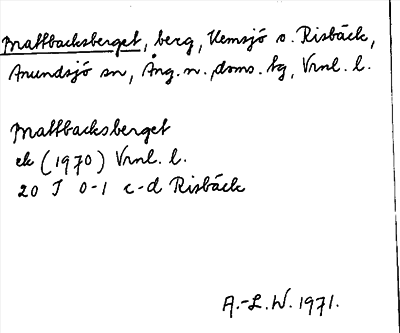 Brattbacksberget, berg, Kemsjö o. Risbäck,
Anundsjö sn, Ång. n. doms. tg, Vrnl. l.
Brattbacksberget
ek (1970) Vrnl. l.
20 J 0-1 c-d Risbäck
A.-L.W. 1971.